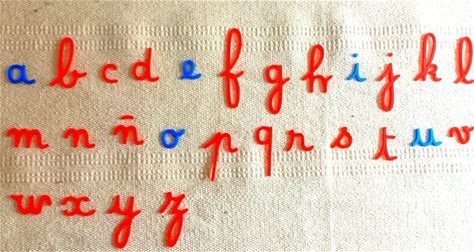 a b c d e f g h i j k l
m n ñ o p q r s t u v
w x y z